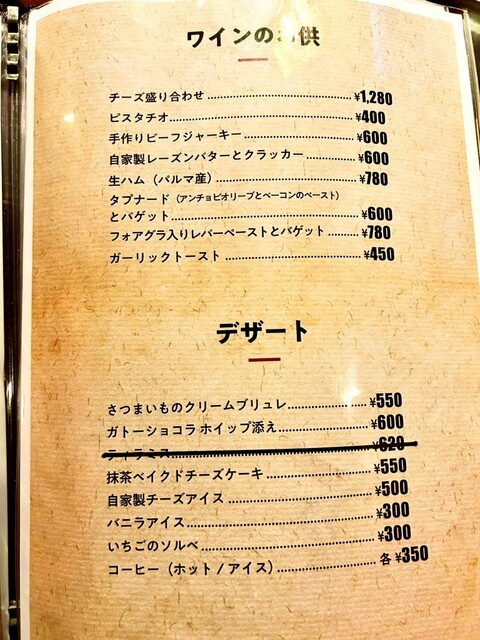 ワインのお供
チーズ盛り合わせ ¥1,280
ピスタチオ ¥400
手作りビーフジャーキー ¥600
自家製レーズンバターとクラッカー ¥600
生ハム（パルマ産） ¥780
タプナード（アンチョビオリーブとベーコンのペースト）
とバゲット ¥600
フォアグラ入りレバーペーストとバゲット ¥780
ガーリックトースト ¥450
デザート
さつまいものクリームブリュレ ¥550
ガトーショコラ ホイップ添え ¥600
ティラミス ¥620
抹茶ベイクドチーズケーキ ¥550
自家製チーズアイス ¥500
バニラアイス ¥300
いちごのソルベ ¥300
コーヒー（ホット / アイス） 各 ¥350